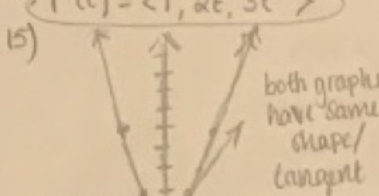 r'(t) = <1, 2t, 3t² >
15)
both graphs
have same
shape/
tangent